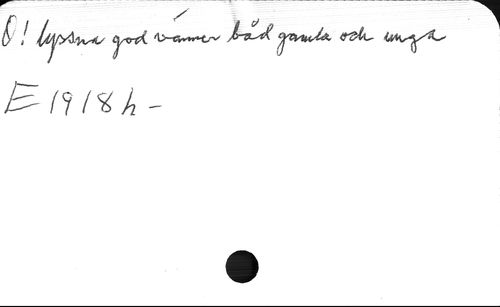 O! lyssna god vänner båd gamla och unga
E 1918 h -